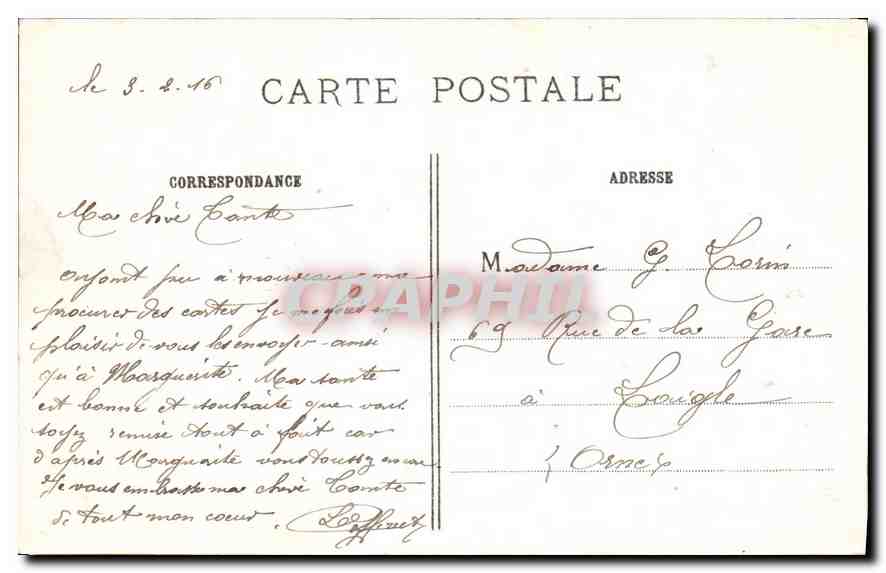 le 3.2.16
CARTE POSTALE
CORRESPONDANCE
Ma chère Tante
Ayant pu à nouveau me
procurer des cartes je me fais un
plaisir de vous les envoyer ainsi
qu'à Marguerite. Ma santé
est bonne et souhaite que vous
soyez remise tout à fait car
d'après Marguerite vous toussez encore
Je vous embrasse ma chère Tante
de tout mon coeur.
ADRESSE
Madame G.
69 Rue de la Gare
à Laigle
(Orne)
CPAPHIL